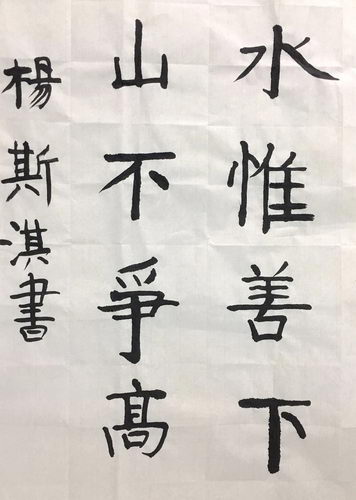 水惟善下
山不爭髙
楊斯淇書